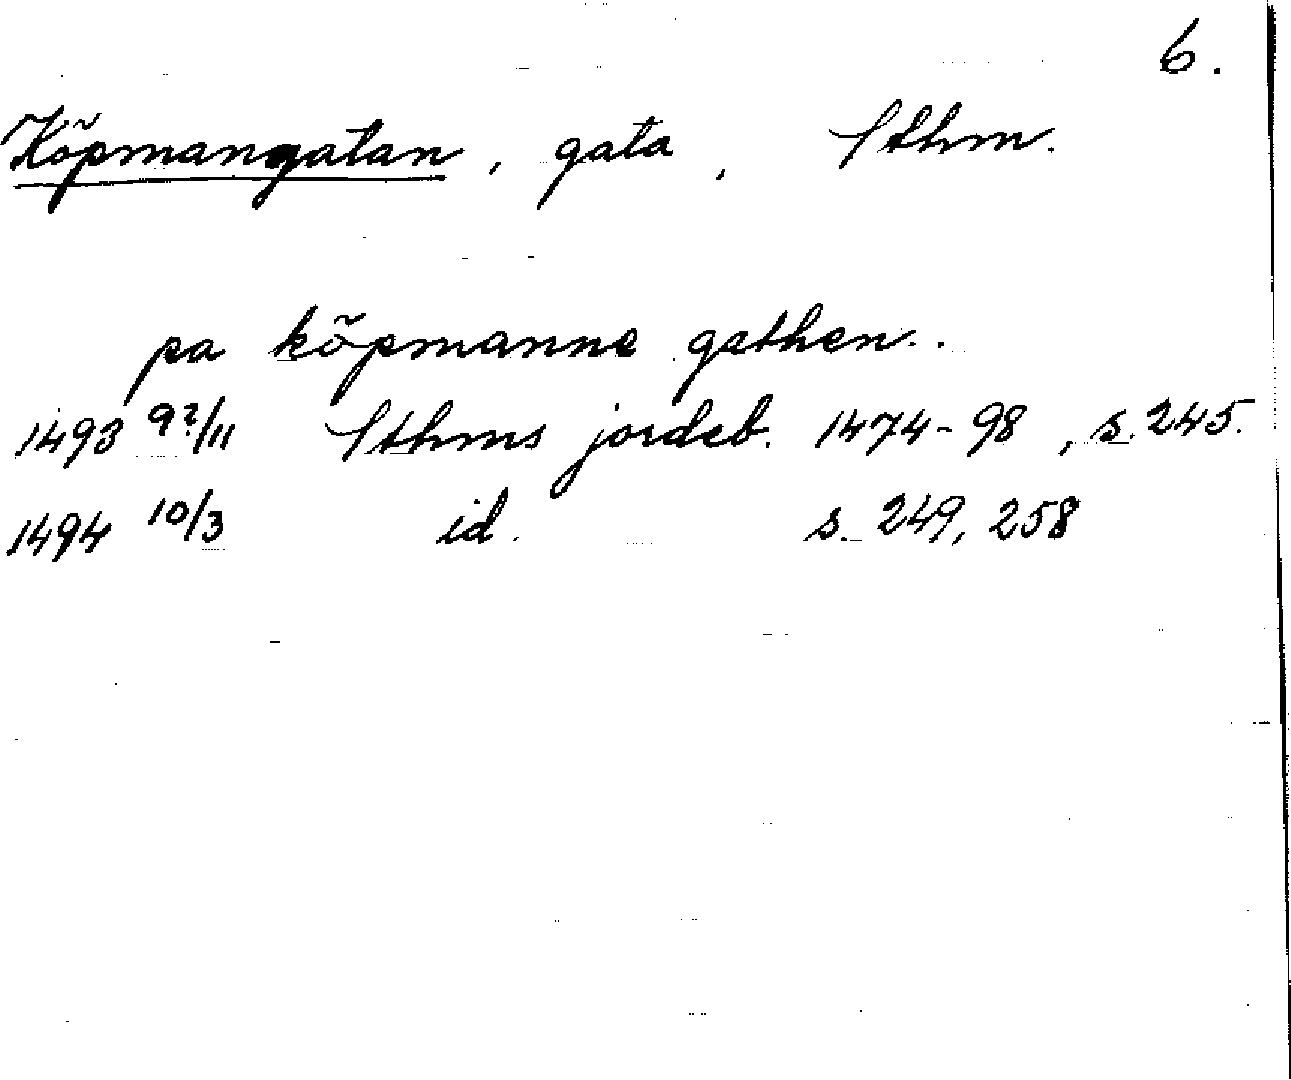 6.
Köpmangatan, gata, Sthm.
pa köpmanne gathen.
1493 9?/11 Sthms jordeb. 1474-98, s. 245.
1494 10/3 id. s. 249, 258